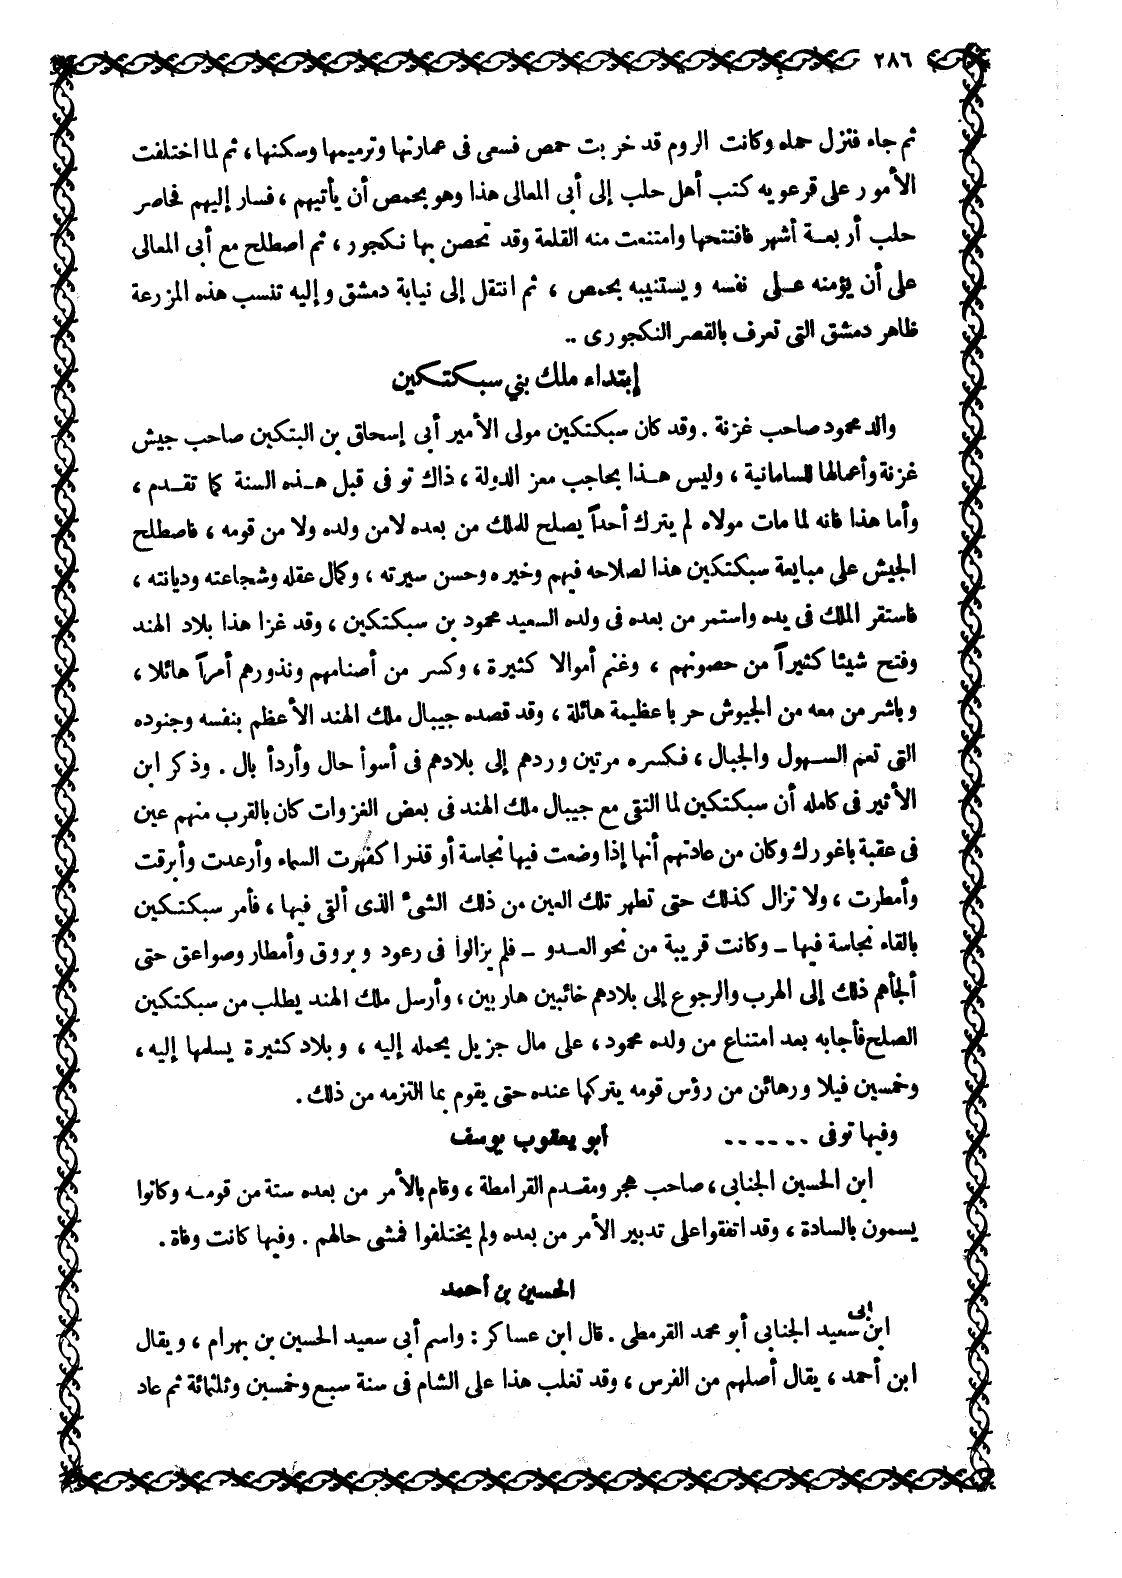 ٢٨٦
ثم جاء فنزل حماه وكانت الروم قد خربت حمص فسعى فى عمارتها وترميمها وسكنها، ثم لما اختلفت
الأمور على قرعويه كتب أهل حلب إلى أبى المعالى هذا وهو بحمص أن يأتيهم، فسار إليهم فحاصر
حلب أربعة أشهر فافتتحها وامتنعت منه القلعة وقد تحصن بها نكجور، ثم اصطلح مع أبى المعالى
على أن يؤمنه على نفسه ويستنيبه بحمص، ثم انتقل إلى نيابة دمشق وإليه تنسب هذه المزرعة
ظاهر دمشق التى تعرف بالقصر النكجورى ..
إبتداء ملك بني سبكتكين
والد محمود صاحب غزنة. وقد كان سبكتكين مولى الأمير أبى إسحاق بن البتكين صاحب جيش
غزنة وأعمالها للسامانية، وليس هذا بحاجب معز الدولة، ذاك توفى قبل هذه السنة كما تقدم،
وأما هذا فانه لما مات مولاه لم يترك أحداً يصلح للملك من بعده لامن ولده ولا من قومه، فاصطلح
الجيش على مبايعة سبكتكين هذا لصلاحه فيهم وخيره وحسن سيرته، وكمال عقله وشجاعته وديانته،
فاستقر الملك فى يده واستمر من بعده فى ولده السعيد محمود بن سبكتكين، وقد غزا هذا بلاد الهند
وفتح شيئا كثيراً من حصونهم، وغنم أموالا كثيرة، وكسر من أصنامهم ونذورهم أمراً هائلا،
وباشر من معه من الجيوش حربا عظيمة هائلة، وقد قصده جيبال ملك الهند الأعظم بنفسه وجنوده
التى تعم السهول والجبال، فكسره مرتين وردهم إلى بلادهم فى أسوأ حال وأردأ بال. وذكر ابن
الأثير فى كامله أن سبكتكين لما التقى مع جيبال ملك الهند فى بعض الغزوات كان بالقرب منهم عين
فى عقبة باغورك وكان من عادتهم أنها إذا وضعت فيها نجاسة أو قذر اكفهرت السماء وأرعدت وأبرقت
وأمطرت، ولا تزال كذلك حتى تطهر تلك العين من ذلك الشئ الذى ألقى فيها، فأمر سبكتكين
بالقاء نجاسة فيها – وكانت قريبة من نحو العدو – فلم يزالوا فى رعود وبروق وأمطار وصواعق حتى
ألجأهم ذلك إلى الهرب والرجوع إلى بلادهم خائبين هاربين، وأرسل ملك الهند يطلب من سبكتكين
الصلح فأجابه بعد امتناع من ولده محمود، على مال جزيل يحمله إليه، وبلاد كثيرة يسلمها إليه،
وخمسين فيلا ورهائن من رؤس قومه يتركها عنده حتى يقوم بما التزمه من ذلك.
وفيها توفى ------ أبو يعقوب يوسف
ابن الحسين الجنابى، صاحب هجر ومقدم القرامطة، وقام بالأمر من بعده ستة من قومه وكانوا
يسمون بالسادة، وقد اتفقوا على تدبير الأمر من بعده ولم يختلفوا فمشى حالهم. وفيها كانت وفاة.
الحسين بن أحمد
ابن أبى سعيد الجنابى أبو محمد القرمطى. قال ابن عساكر: واسم أبى سعيد الحسين بن بهرام، ويقال
ابن أحمد، يقال أصلهم من الفرس، وقد تغلب هذا على الشام فى سنة سبع وخمسين وثلثمائة ثم عاد